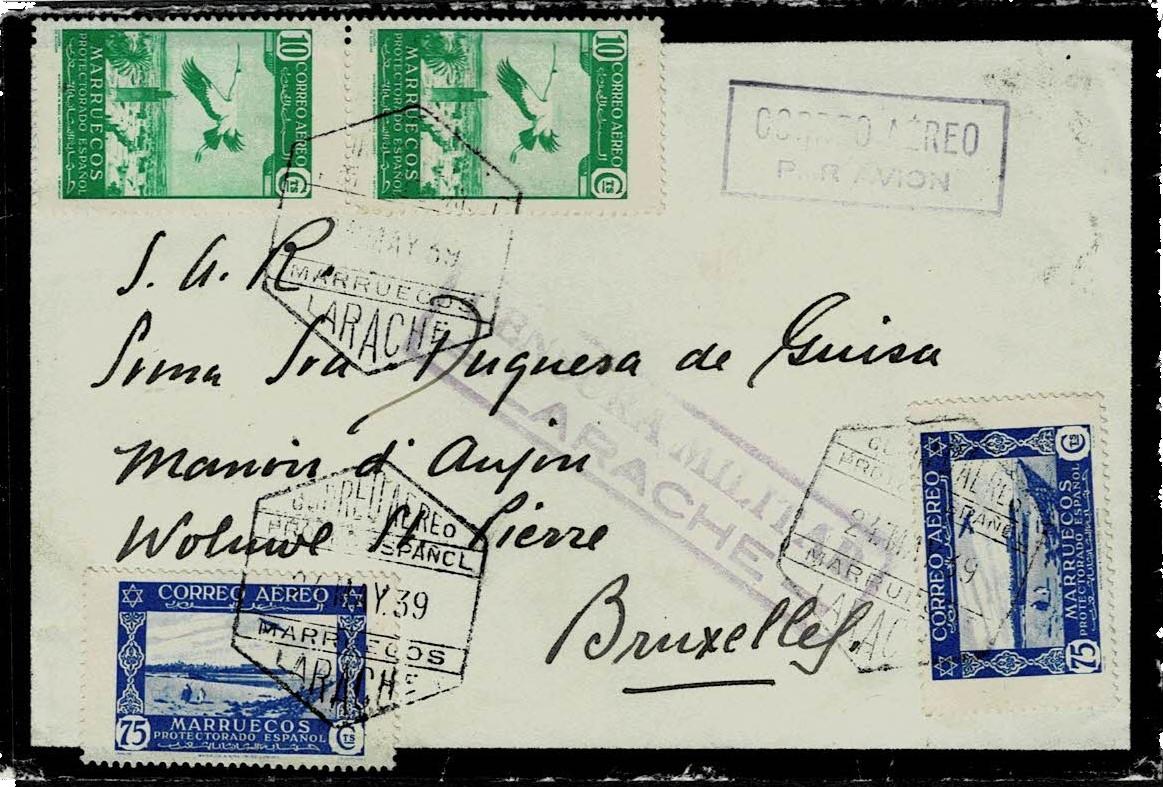 10 CORREO AÉREO Cts
MARRUECOS
PROTECTORADO ESPAÑOL
10 CORREO AÉREO Cts
MARRUECOS
PROTECTORADO ESPAÑOL
CORREO AÉREO
PAR AVION
MAY.39
MARRUECOS
LARACHE
S. A. R.
Srma Sra Duquesa de Guisa
Manoir d'Anjou
Woluwe St. Pierre
Bruxelles.
CENSURA MILITAR
LARACHE
CORREO AEREO
ESPAÑOL
MAY.39
MARRUECOS
LARACHE
CORREO AÉREO
MARRUECOS
75 PROTECTORADO ESPAÑOL Cts
24 MAY 39
MARRUECOS
CORREO AÉREO
MARRUECOS
75 PROTECTORADO ESPAÑOL Cts